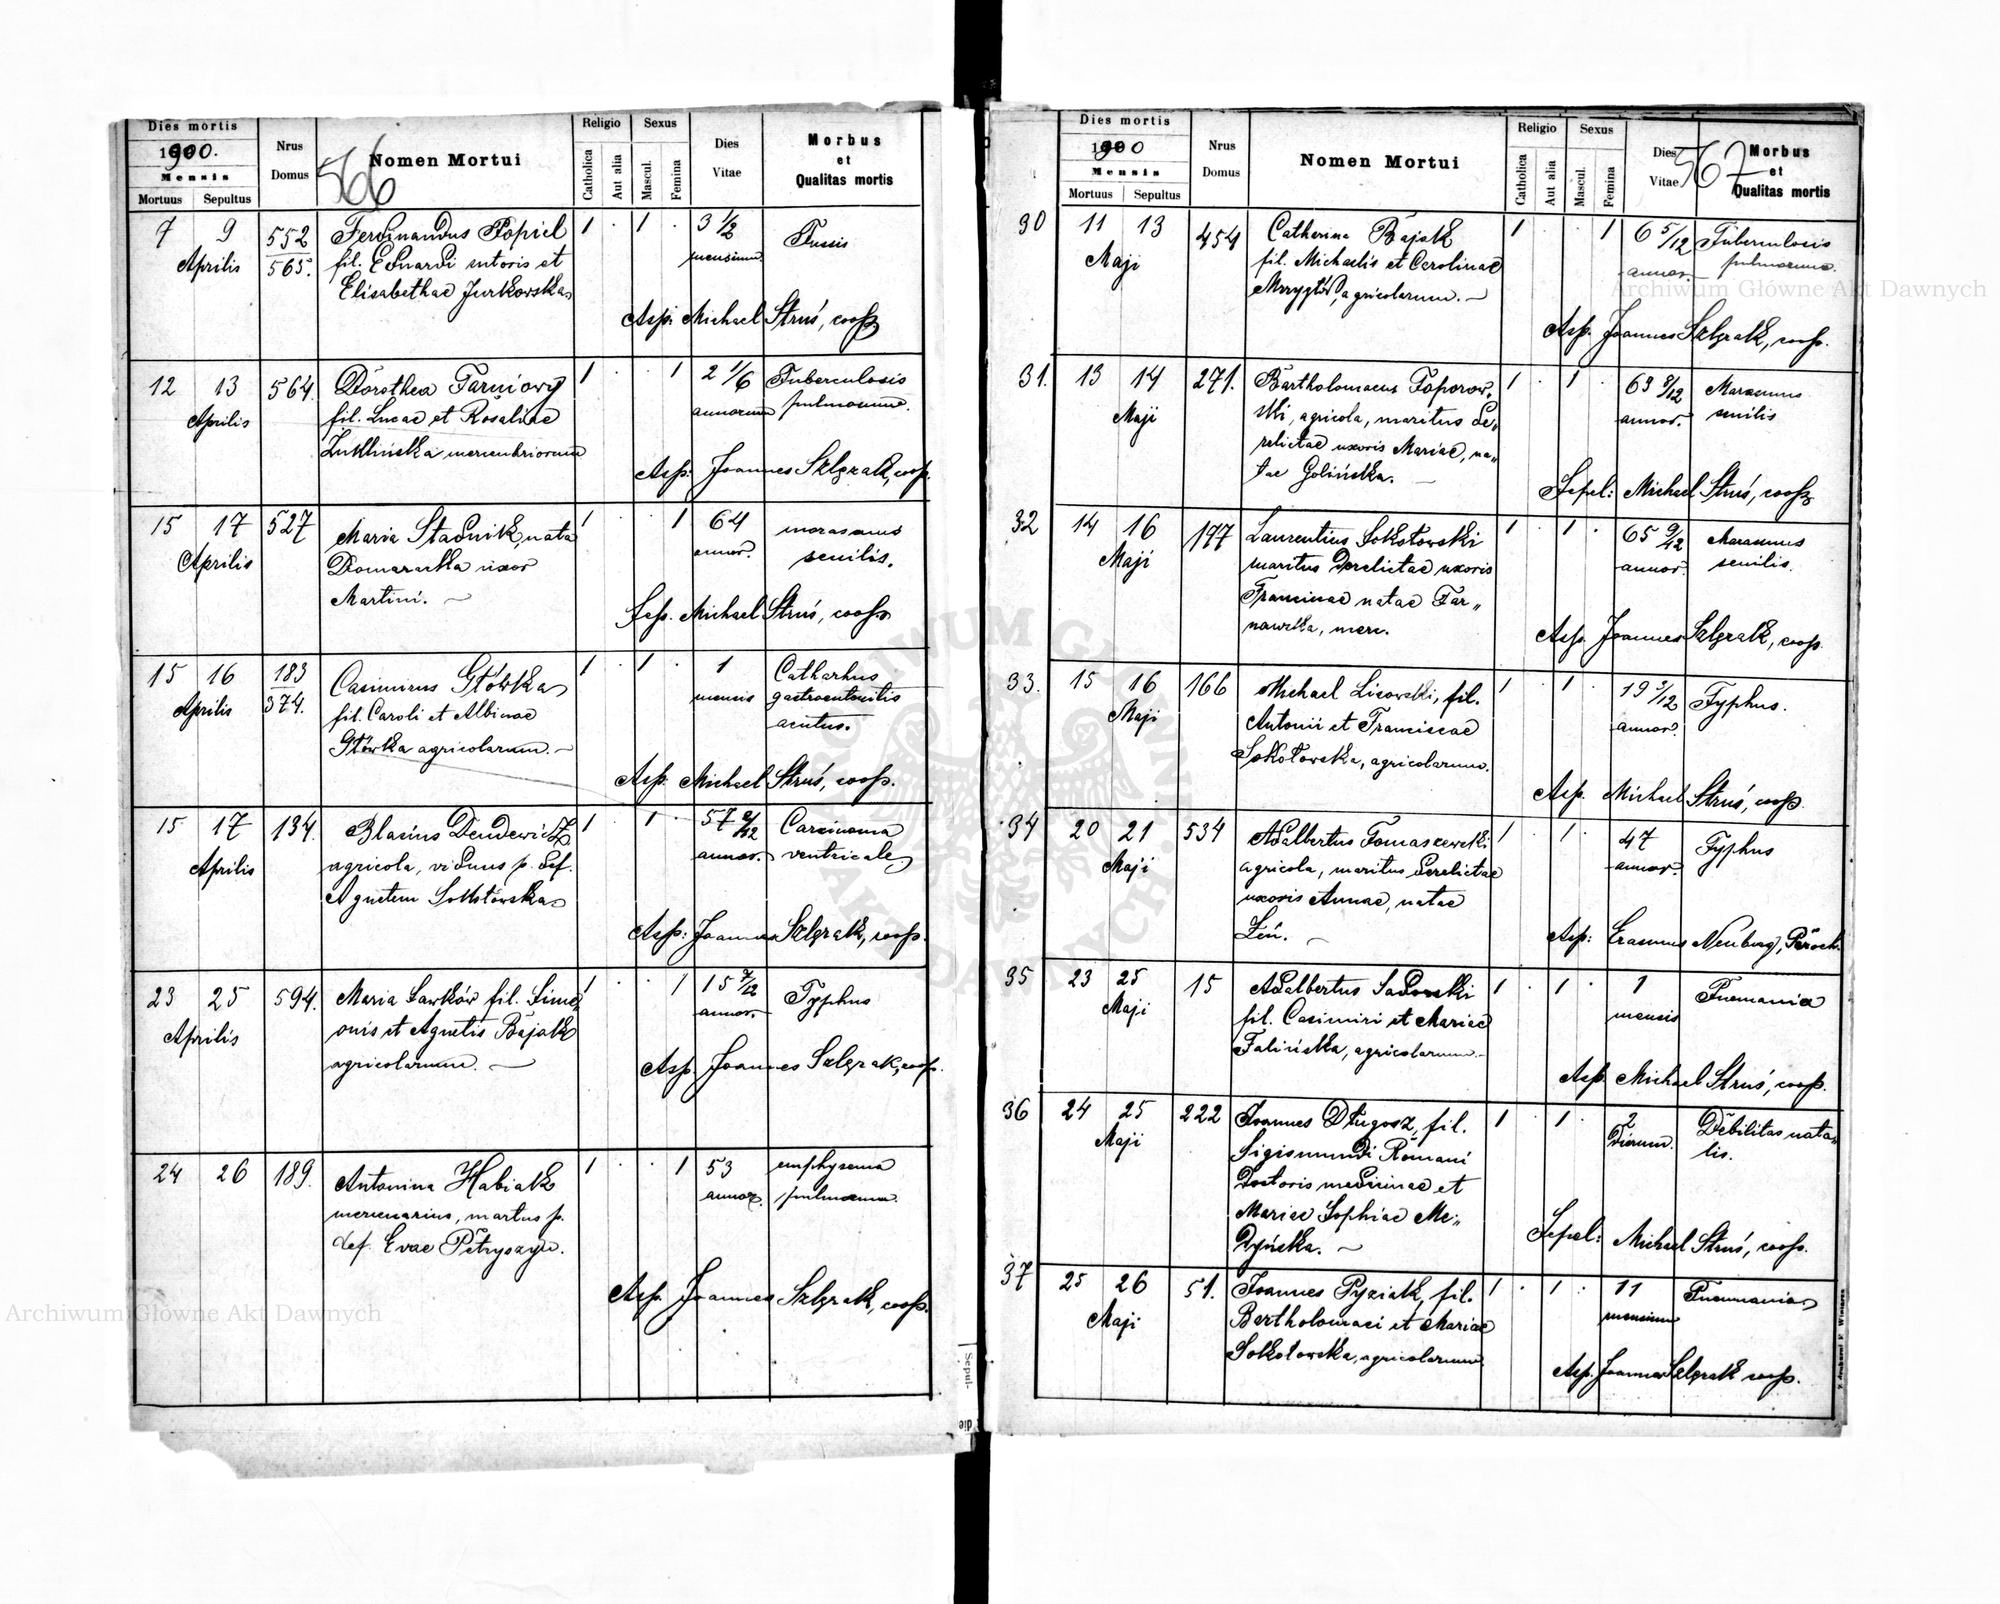 Dies mortis
1900.
Mensis
Mortuus Sepultus
Nrus
Domus
Nomen Mortui
566
Religio
Catholica
Aut alia
Sexus
Mascul.
Femina
Dies
Vitae
Morbus
et
Qualitas mortis
7 9 552 Ferdinandus Popiel 1 . 1 . 3 1/2 Tussis
Aprilis 565. fil. Eduardi sutoris et mensium
Elisabethae Jurkowska
Asp: Michael Struś, coop.
12 13 564. Dorothea Tarniowy 1 . . 1 2 1/6 Tuberculosis
Aprilis fil. Lucae et Rosaliae annorum pulmonum.
Asp: Joannes Szlęzak, coop.
15 17 527 Maria Stadnik, nata 1 . . 1 64 marasmus
Aprilis Domaradzka uxor annor. senilis.
Martini.
Sep. Michael Struś, coop.
15 16 183 Casimirus Główka 1 . 1 . 1 Catharhus
Aprilis 374. fil. Caroli et Albinae mensis gastroenteritis
Główka agricolarum. acutus.
Asp. Michael Struś, coop.
15 17 134. Blasius Dendewicz 1 . 1 . 57 2/12 Carcinoma
Aprilis agricola, viduus p. def. annor. ventricale
Agnetem Sokołowska
Asp: Joannes Szlęzak, coop.
23 25 594. Maria Sawków fil. Sime 1 . . 1 15 7/12 Typhus
Aprilis onis et Agnetis Bajak annor.
agricolarum.
Asp. Joannes Szlęzak, coop.
24 26 189. Antonina Habiak 1 . . 1 53 emphysema
mercenarius, martus p. annor. pulmonum.
def. Evae Petryszyn.
Asp. Joannes Szlęzak, coop.
Dies mortis
1900
Mensis
Mortuus Sepultus
Nrus
Domus
Nomen Mortui
Religio
Catholica
Aut alia
Sexus
Mascul.
Femina
Dies
Vitae
567
Morbus
et
Qualitas mortis
30 11 13 454 Catherina Bajak 1 . . 1 6 5/12 Tuberculosis
Maji fil. Michaelis et Carolinae annor. pulmonum.
Mrzygłód, agricolarum.
Asp. Joannes Szlęzak, coop.
31. 13 14 271. Bartholomaeus Toporow- 1 . 1 . 63 9/12 Marasmus
Maji ski, agricola, maritus de„ annor. senilis
relictae uxoris Mariae, na„
tae Golińska.
Sepel: Michael Struś, coop.
32 14 16 197 Laurentius Sokołowski 1 . 1 . 65 9/12 Marasmus
Maji maritus derelictae uxoris annor. senilis.
Franciscae natae Tar„
nawska, merc.
Asp. Joannes Szlęzak, coop.
33. 15 16 166 Michael Lisowski, fil. 1 . 1 . 19 3/12 Typhus.
Maji Antonii et Franciscae annor.
Sokołowska, agricolarum.
Asp. Michael Struś, coop.
34 20 21 534 Adalbertus Tomaszewski 1 . 1 . 47 Typhus
Maji agricola, maritus derelictae annor.
uxoris Annae, natae
Zeń.
Asp: Erasmus Neuburg, Paroch.
35 23 25 15 Adalbertus Sadowski 1 . 1 . 1 Pnemania
Maji fil. Casimiri et Mariae mensis
Falińska, agricolarum.
Asp. Michael Struś, coop.
36 24 25 222 Joannes Długosz, fil. 1 . 1 . 2 Debilitas nata„
Maji Sigismundi Romani dierum. lis.
Doctoris medicinae et
Mariae Sophiae Me„
dyńska.
Sepel: Michael Struś, coop.
37 25 26 51. Joannes Pyziak, fil. 1 . 1 . 11 Pneumania
Maji Bartholomaei et Mariae mensium
Sokołowska, agricolarum.
Asp. Joannes Szlęzak coop.
Sepul-
die
Archiwum Główne Akt Dawnych
Archiwum Główne Akt Dawnych
ARCHIWUM GŁÓWNE AKT DAWNYCH